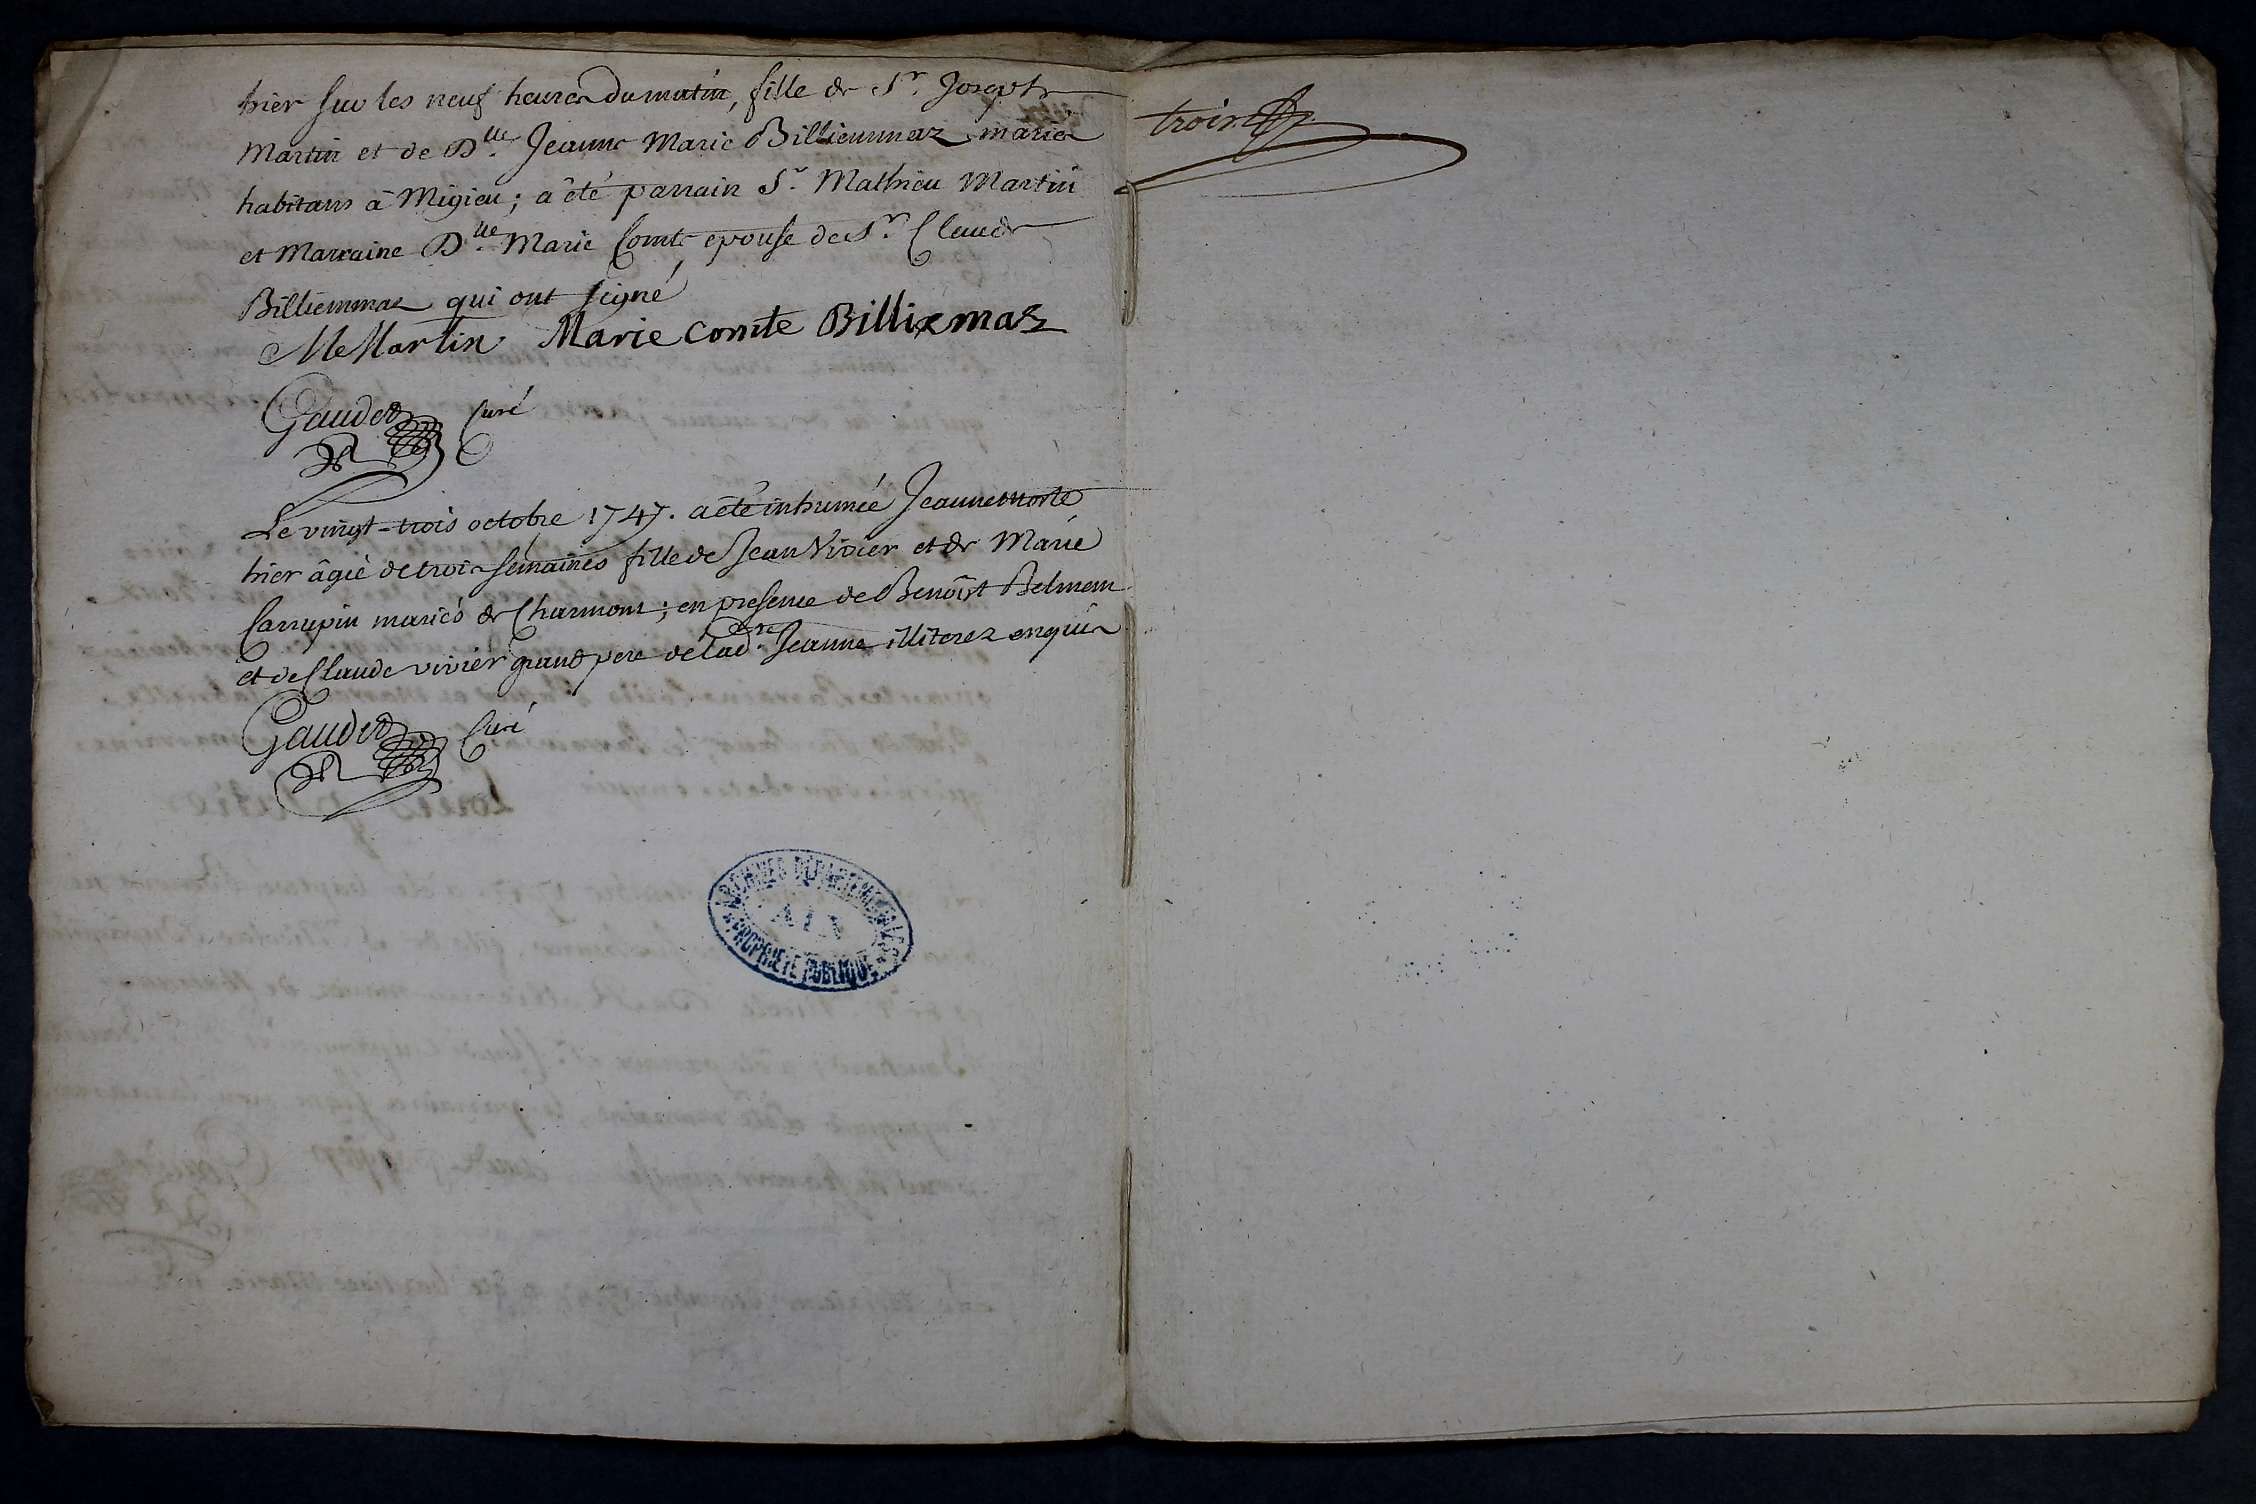 hier sur les neuf heures du matin, fille de Sr. Joseph
Martin et de Dlle. Jeanne Marie Billiemmaz mariés
habitans à Migieu ; a été parrain Sr. Mathieu Martin
et Marraine Dlle. Marie Comte epouse de Sr. Claude
Billiemmaz qui ont signé
Martin Marie comte Billiemaz
Gaudet Curé
Le vingt-trois octobre 1747. a été inhumée Jeanne morte
hier âgée de trois semaines fille de Jean Vivier et de Marie
Carrupin mariés de Charmont ; en presence de Benoist Belmem
et de Claude vivier grand pere de lad. Jeanne illiterez enquis
Gaudet Curé
ARCHIVES DÉPARTEMENTALES
AIN
PROPRIÉTÉ PUBLIQUE
trois